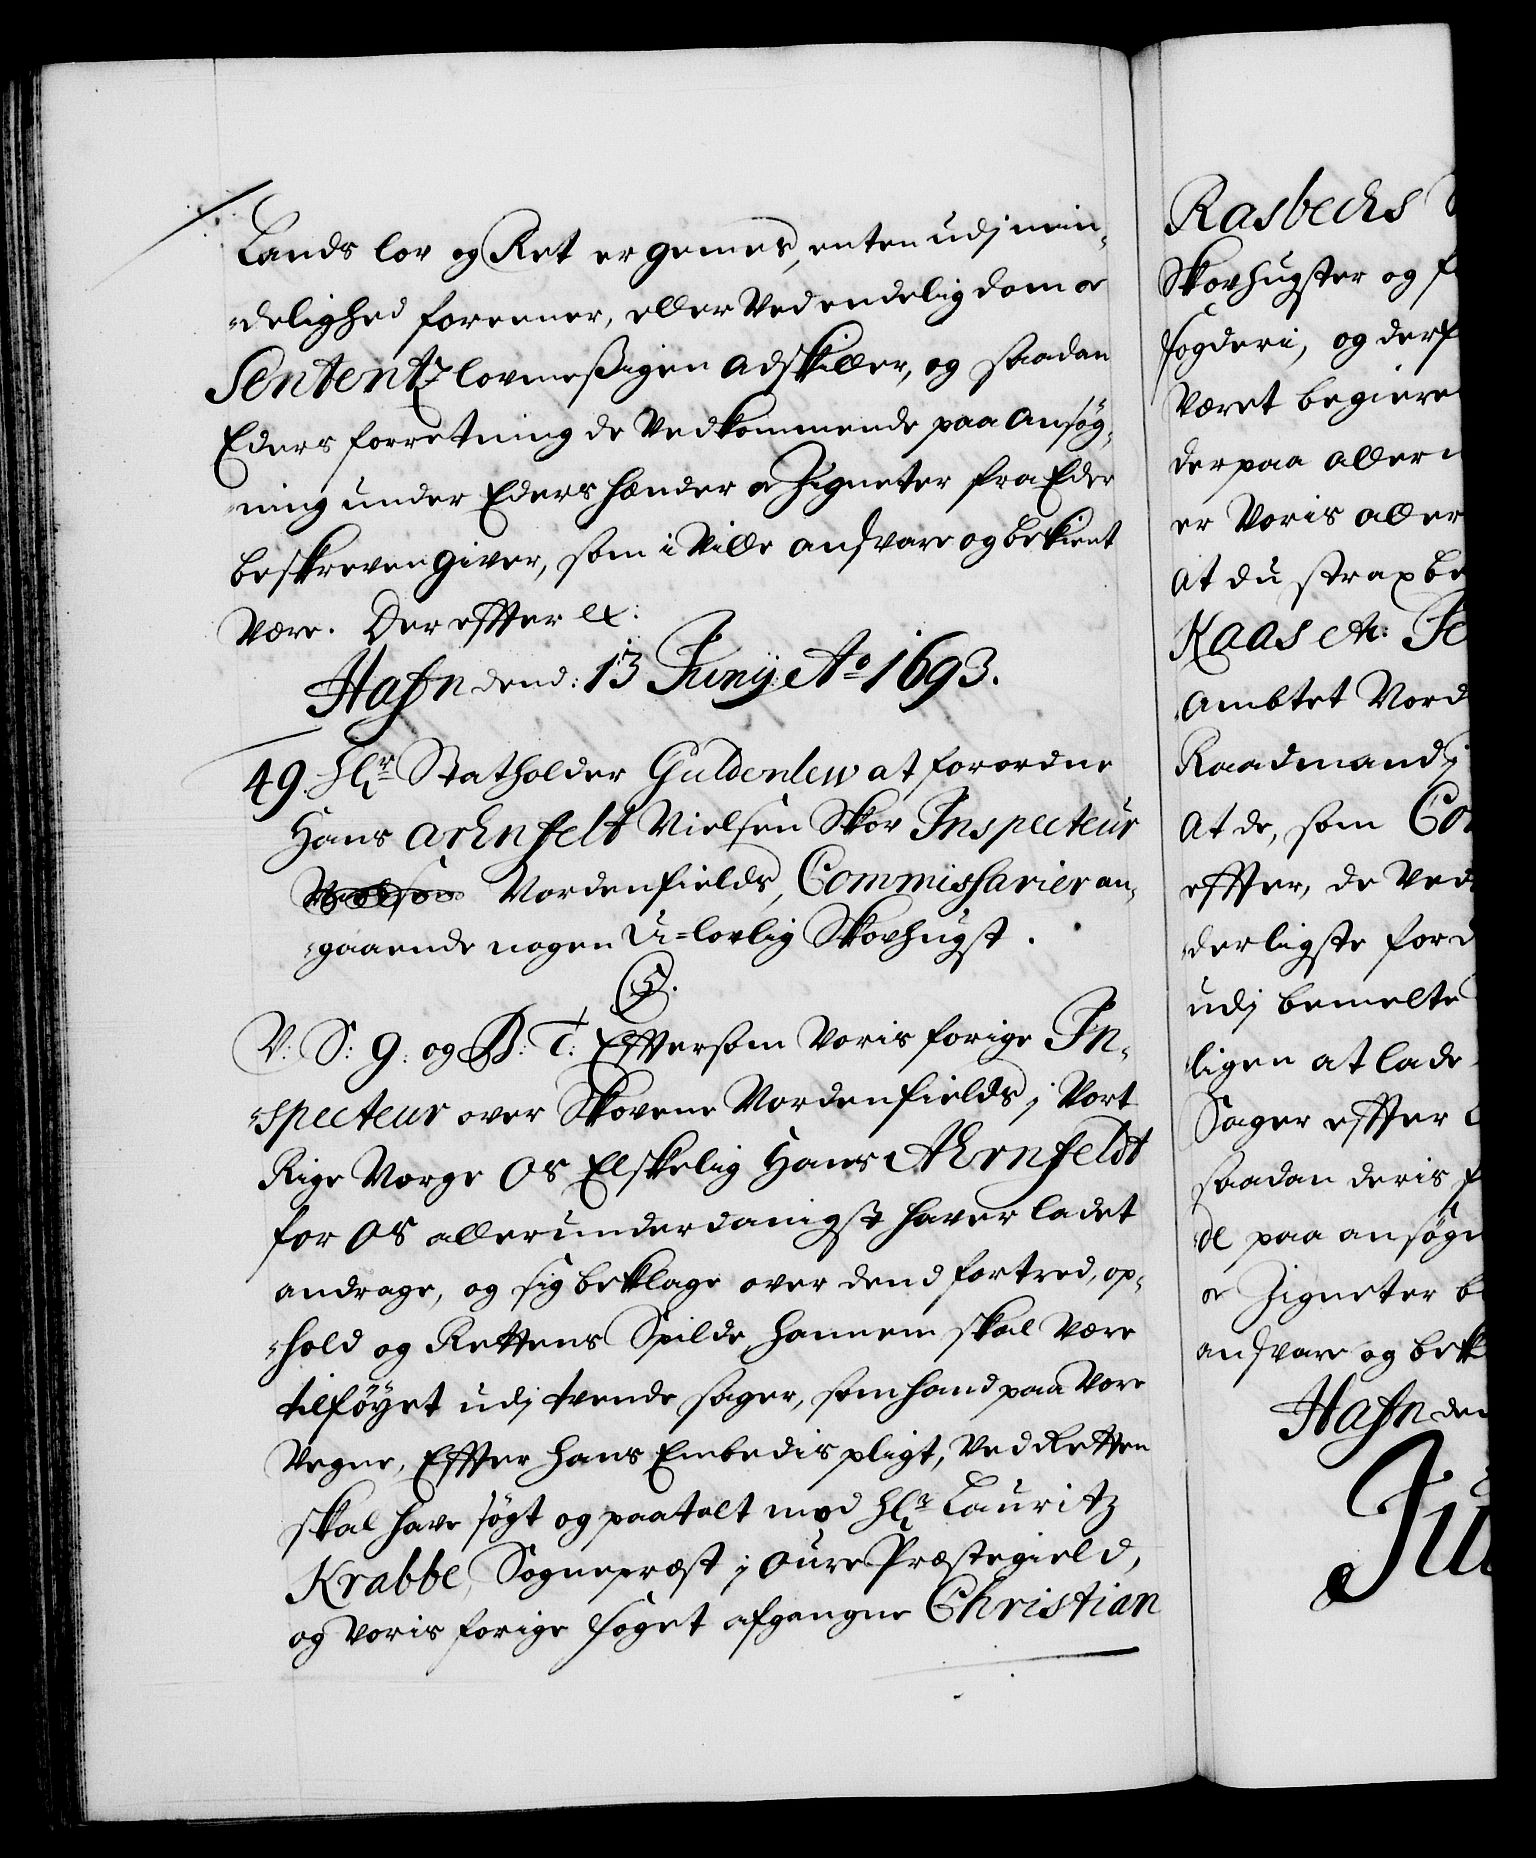 Lands lov og Ret er gemes, enten udj min,
delighed foreener, eller ved endelig dom &
Sententz lovmeßigen adskiller, og saadan
Eders forretning de Vedkommende paa ansøg,
ning under Eders hænder & Zigneter fra Eder
beskreven giver, som i Ville andsvare og bekient
være. Der effter &:
Hafn dend: 13 Junij: Ao 1693.
49. Hr Statholder Guldenlew at forordne
Hans Arhnfelt Nielsen Skov Inspecteur
Nordenfields, Commissarier an,
gaaende nogen U=lovlig Skovhugst.
C5.
V: S: G: og B: T: Effversom Voris forige In,
specteur over Skovene Nordenfields j Vort
Rige Norge Os Elskelig Hans Ahrnfeldt
for Os allerunderdanigst haver ladet
andrage, og sig beklage over dend fortred, op,
hold og Rettens Spilde hannem skal være
tilføyet udj tvende sager, som hand paa Vore
Vegne, Effter hans Embedis pligt, ved Retten
skal have søgt og paatalt mod Hr Lauritz
Krabbe, Sognepræst j Oure Præstegield,
og Voris forige foget afgangne Christian
Rasbechs
Skovhugster og
fogderi, og derf
været begiere
derpaa aller
er Voris aller
at du strax be
Kaas
Ambtet Nord
Raadmand j
At de, som Com
effter, de Ved
derligste ford
udj bemelte
ligen at lade
Sager effter
saadan deris f
de paa ansøgn
& Zigneter b
andsvare og bek
Hafn den
Ju